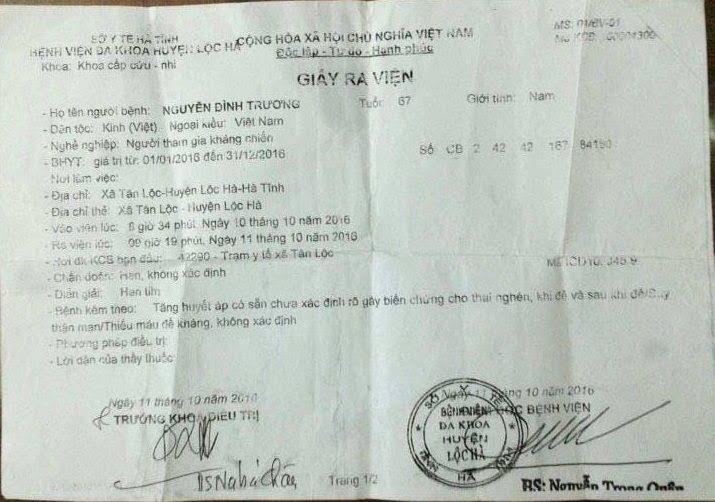 SỞ Y TẾ HÀ TĨNH
BỆNH VIỆN ĐA KHOA HUYỆN LỘC HÀ
Khoa: Khoa cấp cứu - nhi
CỘNG HÒA XÃ HỘI CHỦ NGHĨA VIỆT NAM
Độc lập - Tự do - Hạnh phúc
MS: 01/BV-01
GIẤY RA VIỆN
- Họ tên người bệnh: NGUYỄN ĐÌNH TRƯƠNG Tuổi: 67 Giới tính: Nam
- Dân tộc: Kinh (Việt) Ngoại kiều: Việt Nam
- Nghề nghiệp: Người tham gia kháng chiến
- BHYT: giá trị từ: 01/01/2016 đến 31/12/2016 Số CB 2 42 42 167 84190
- Nơi làm việc:
- Địa chỉ: Xã Tân Lộc-Huyện Lộc Hà-Hà Tĩnh
- Địa chỉ thẻ: Xã Tân Lộc - Huyện Lộc Hà
- Vào viện lúc: 8 giờ 34 phút, Ngày 10 tháng 10 năm 2016
- Ra viện lúc: 09 giờ 19 phút, Ngày 11 tháng 10 năm 2016
- Nơi đk KCB ban đầu: 42290 - Trạm y tế xã Tân Lộc
- Chẩn đoán: Hen, không xác định Mã ICD10: J45.9
- Diễn giải: Hen tim
- Bệnh kèm theo: Tăng huyết áp có sẵn chưa xác định rõ gây biến chứng cho thai nghén, khi đẻ và sau khi đẻ/Suy
thận mạn/Thiếu máu đề kháng, không xác định
- Phương pháp điều trị:
- Lời dặn của thầy thuốc:
Ngày 11 tháng 10 năm 2016
TRƯỞNG KHOA ĐIỀU TRỊ
Ngày 11 tháng 10 năm 2016
ĐỐC BỆNH VIỆN
SỞ Y TẾ
BỆNH VIỆN
ĐA KHOA
HUYỆN
LỘC HÀ
Trang 1/2
BS: Nguyễn Trọng